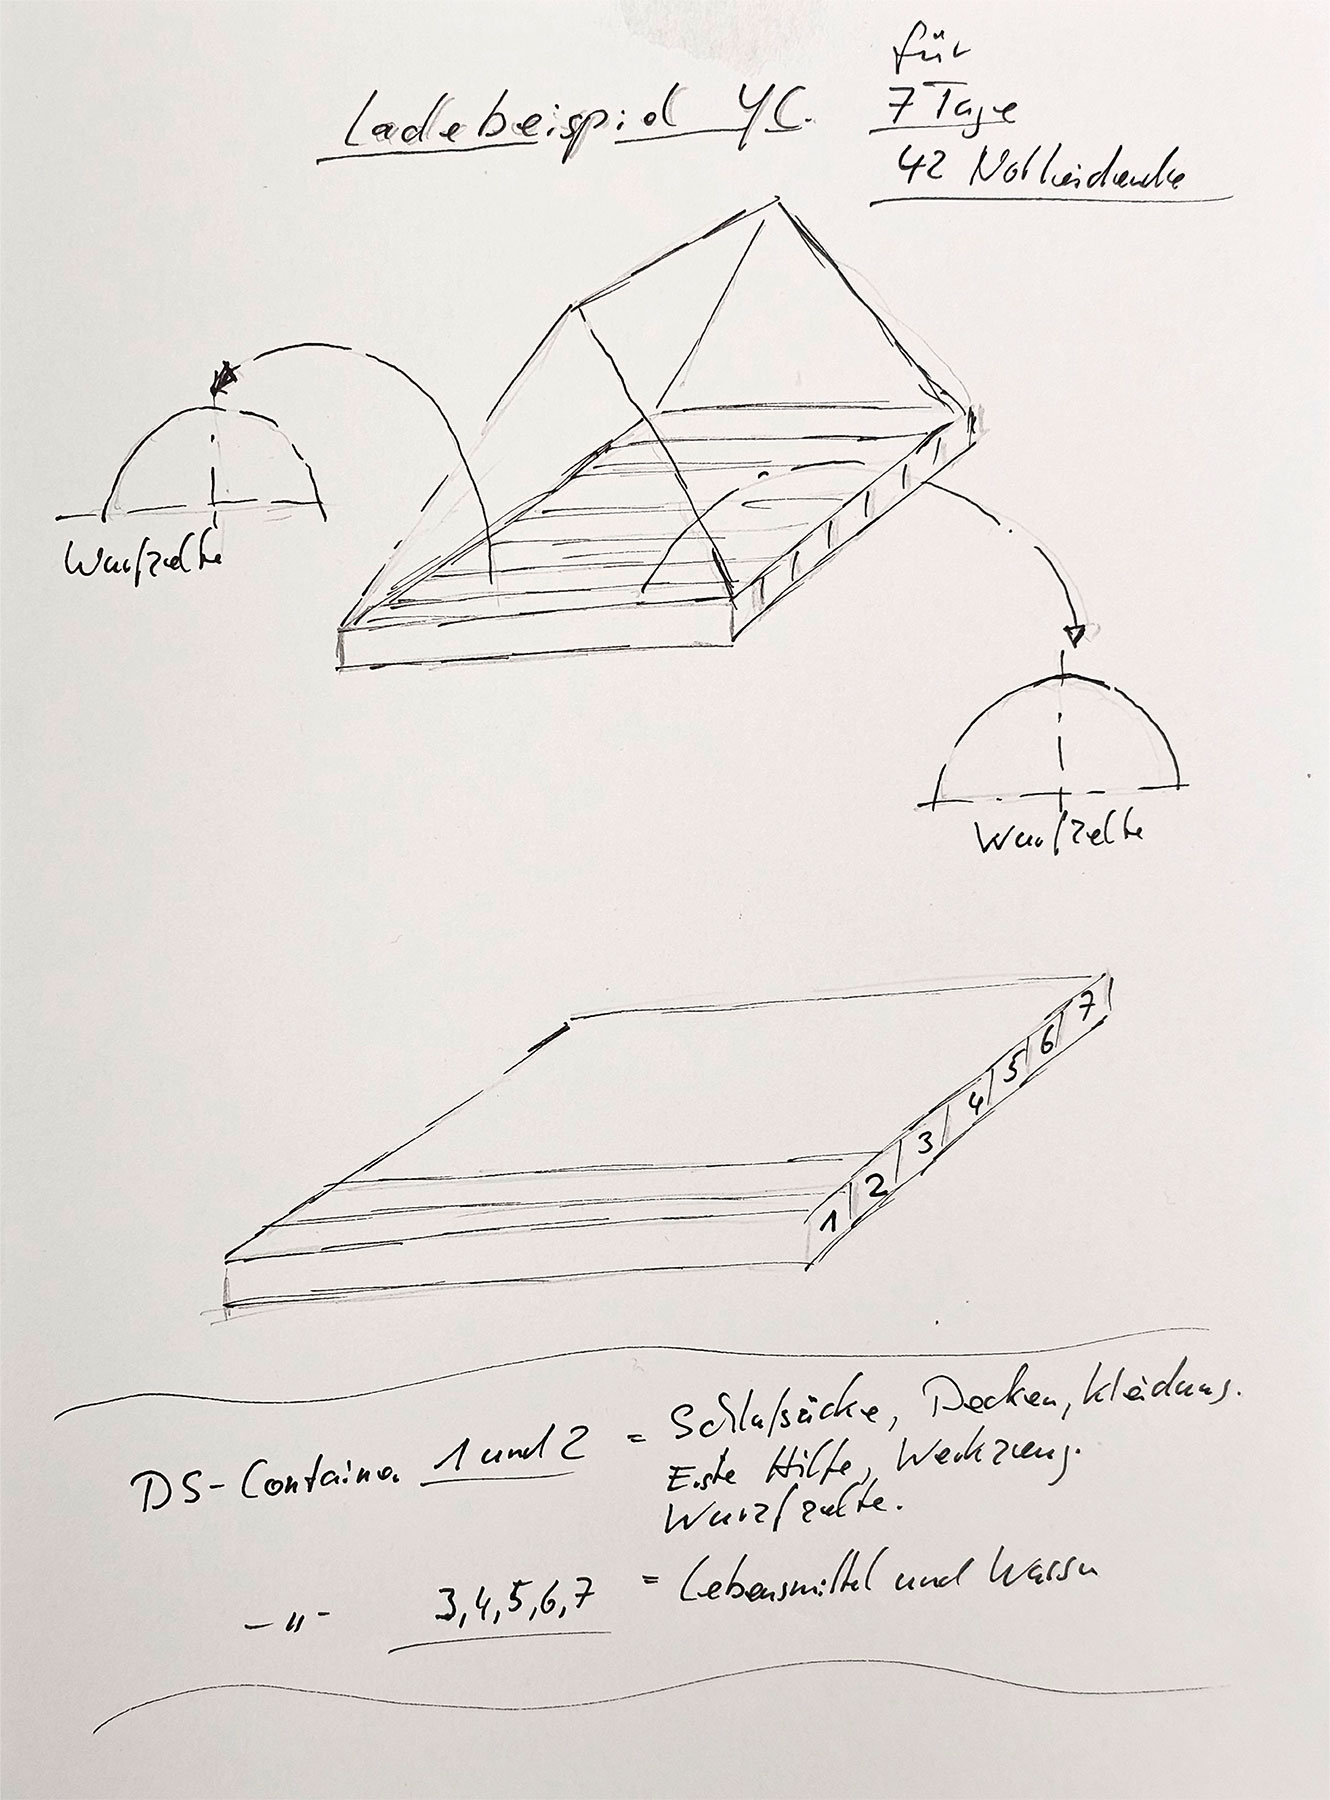 Ladebeispiel YC.
für
7 Tage
42 Notleidende
Wurfzelte
Wurfzelte
1 2 3 4 5 6 7
DS-Container 1 und 2 = Schlafsäcke, Decken, Kleidung.
Erste Hilfe, Werkzeug.
Wurfzelte.
-"- 3,4,5,6,7 = Lebensmittel und Wasser